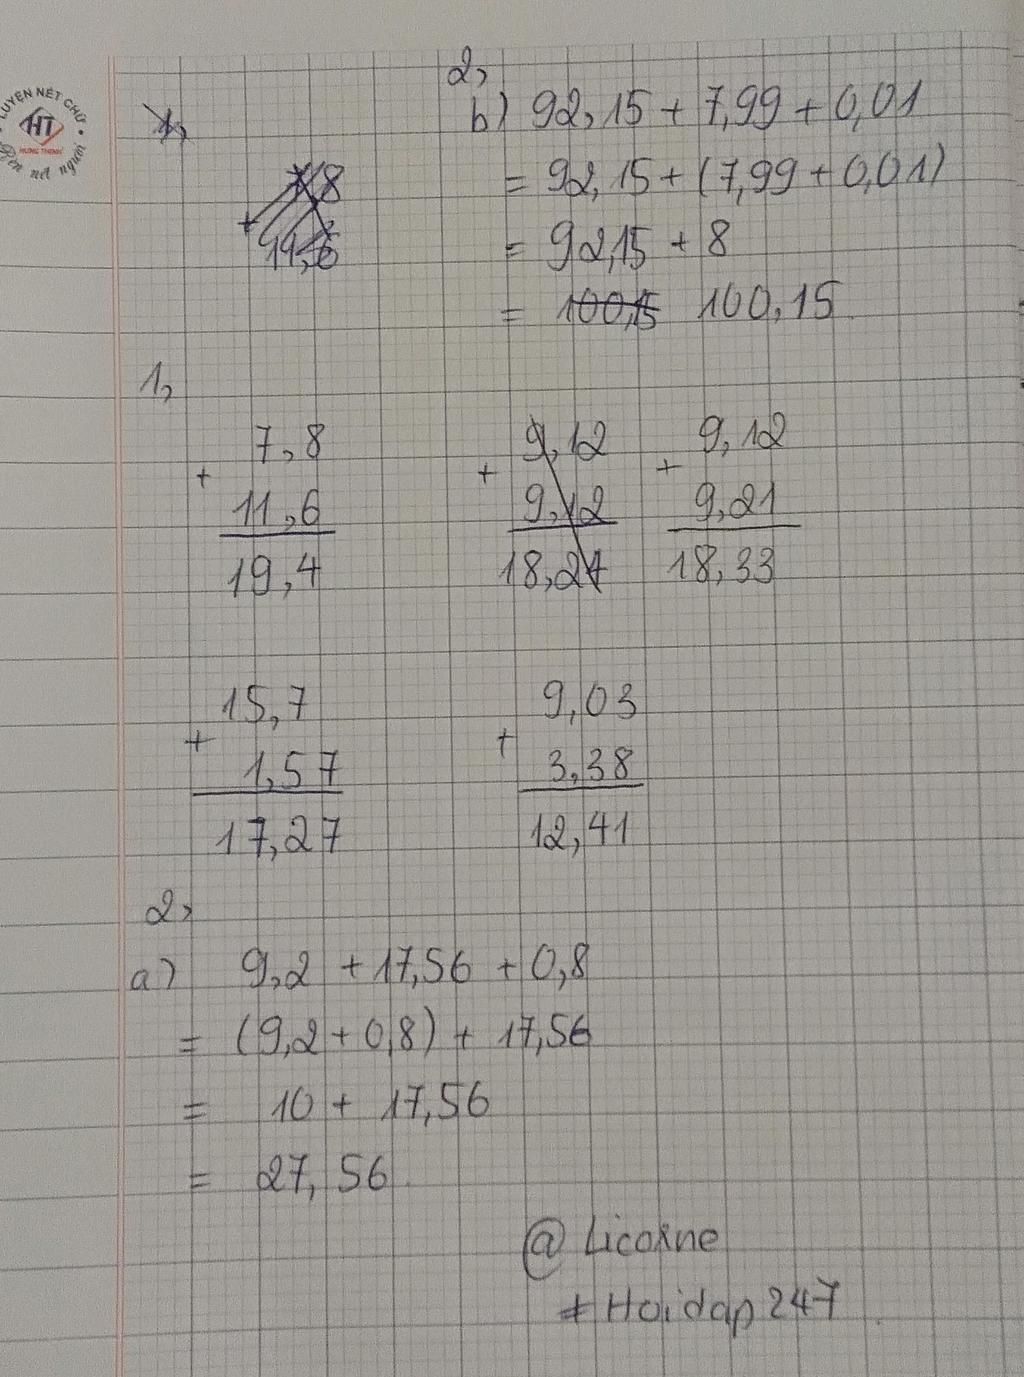 LUYỆN NÉT CHỮ
HT
HƯNG THỊNH
Rèn nét người
2,
b) 92,15 + 7,99 + 0,01
= 92,15 + (7,99 + 0,01)
= 92,15 + 8
= 100,15 100,15
1,
7,8
+
11,6
19,4
9,12
+
9,12
18,24
9,12
+
9,21
18,33
15,7
+
1,57
17,27
9,03
+
3,38
12,41
2,
a) 9,2 + 17,56 + 0,8
= (9,2 + 0,8) + 17,56
= 10 + 17,56
= 27,56
@ Licorne
# Hoidap 247